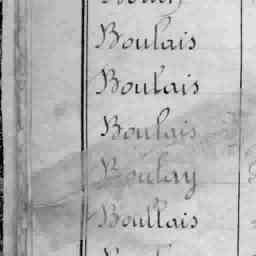 Boulais
Boulais
Boulais
Boulay
Boullais